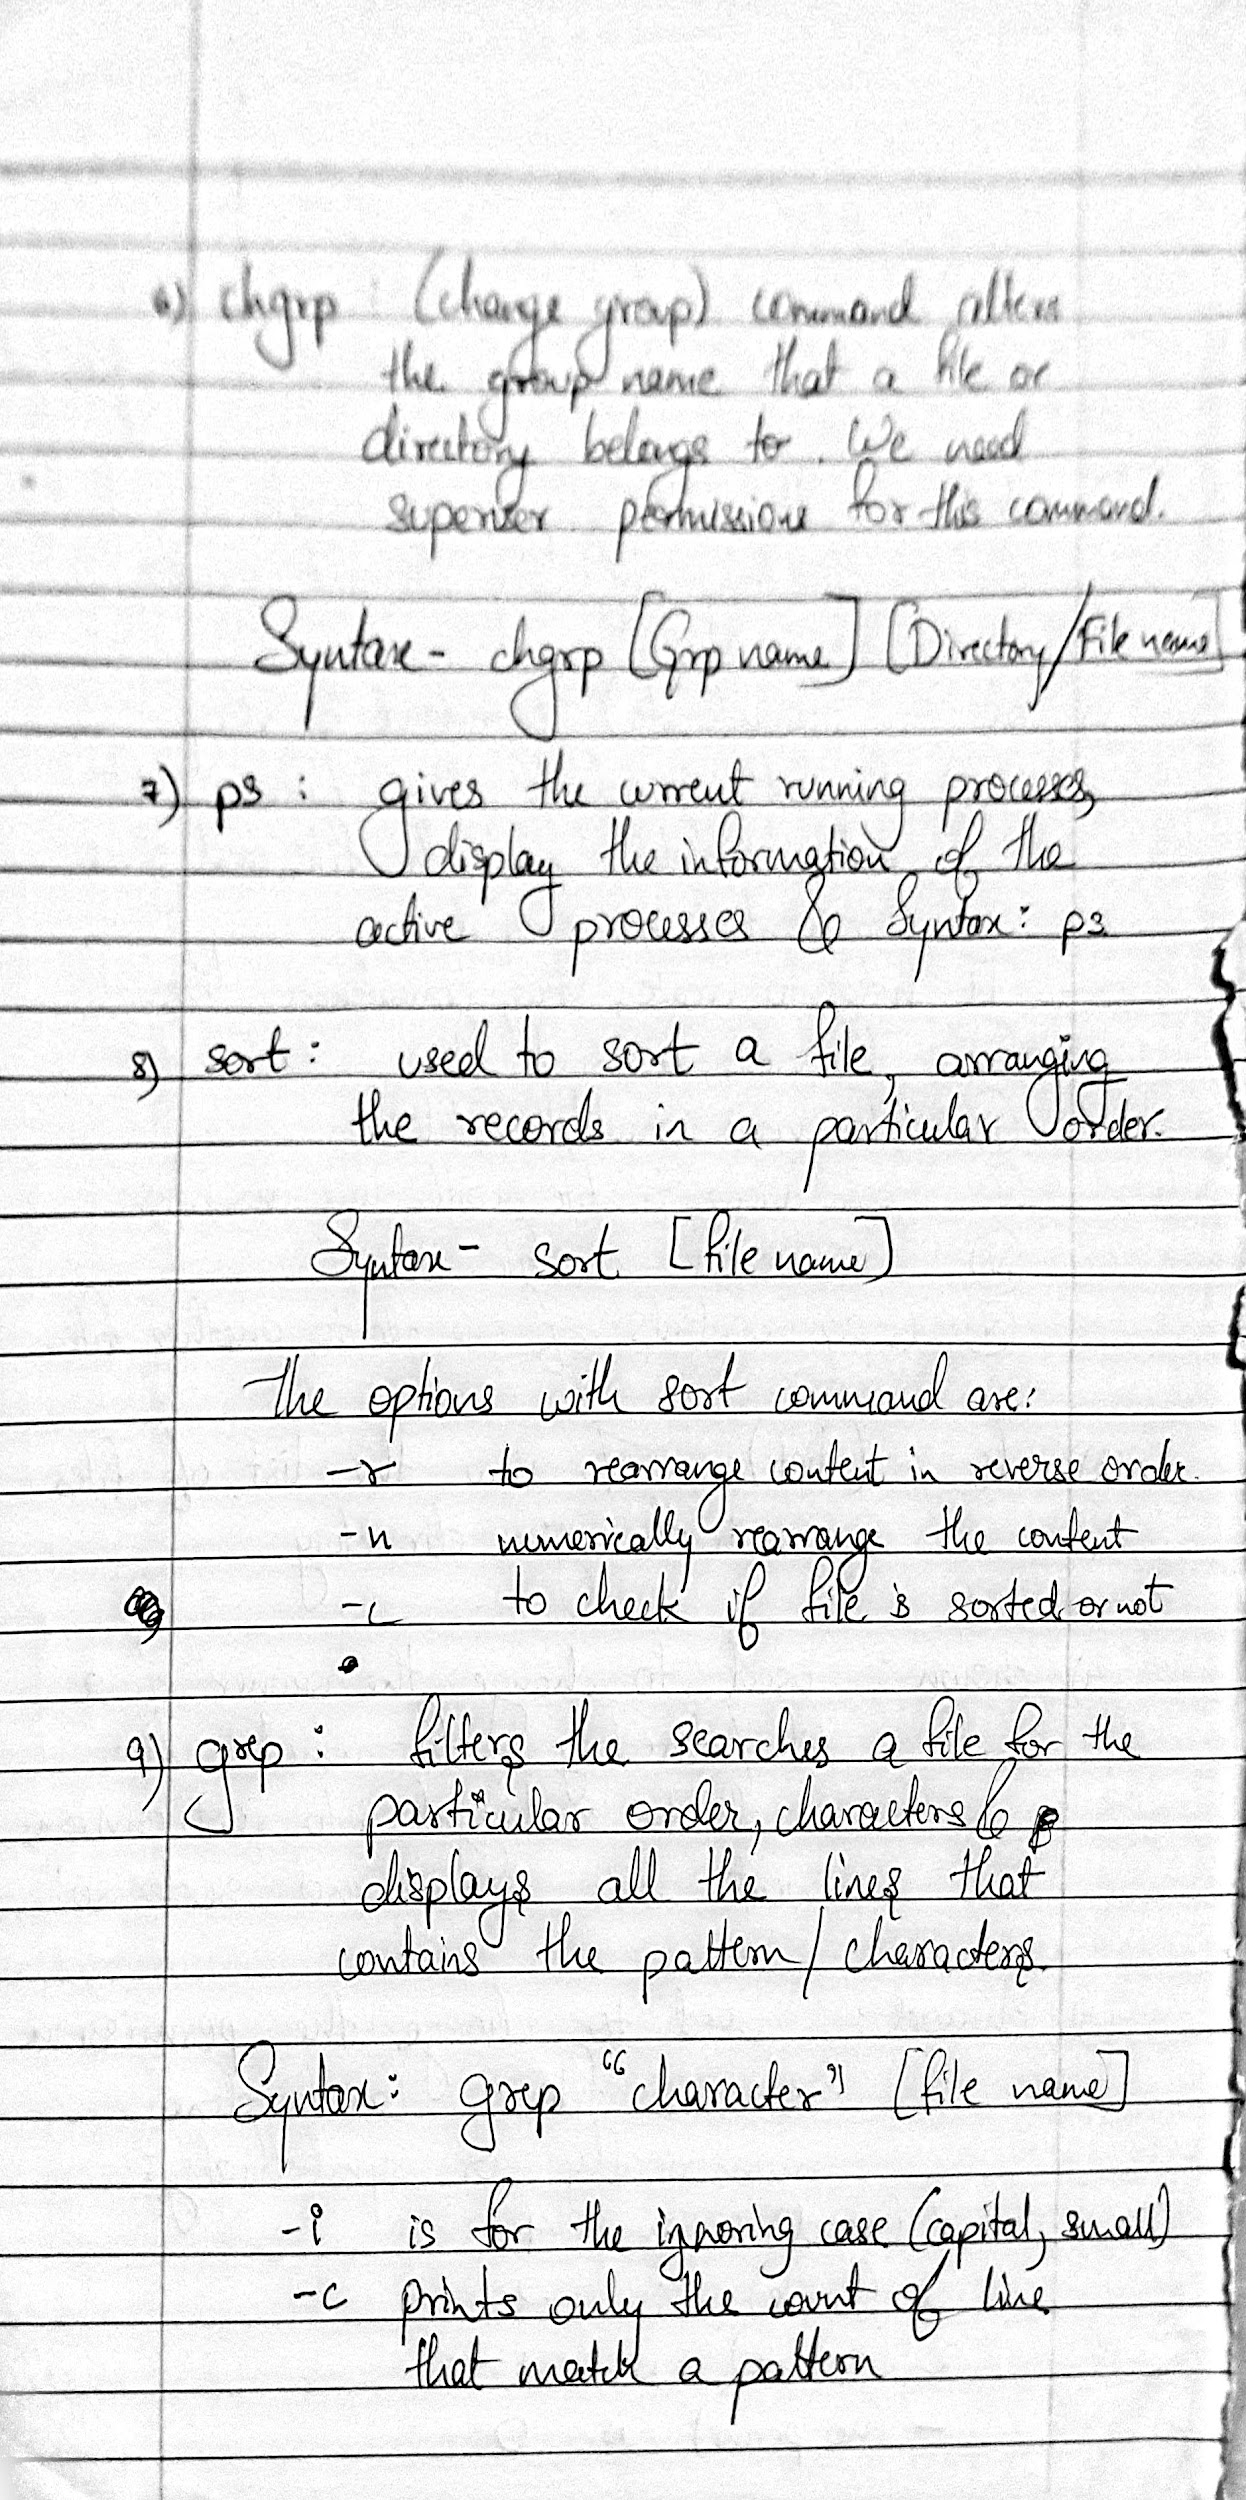 6) chgrp : (change group) command alters
the group name that a file or
directory belongs to. We need
superuser permissions for this command.
Syntax - chgrp [Grp name] [Directory/File name]
7) ps : gives the current running processes,
display the information of the
active processes & Syntax: ps
8) sort : used to sort a file, arranging
the records in a particular order.
Syntax - sort [file name]
The options with sort command are:
-r to rearrange content in reverse order.
-n numerically rearrange the content
-c to check if file is sorted or not
9) grep : filters the searches a file for the
particular order, characters &
displays all the lines that
contains the pattern / characters.
Syntax: grep "character" [file name]
-i is for the ignoring case (capital, small)
-c prints only the count of line
that match a pattern